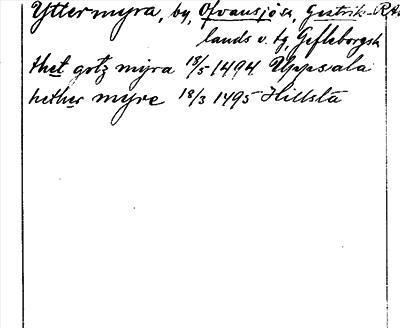 Yttermyra, by, Ofvansjö sn, Gestrik- RA.
lands v. tg, Gefleborgsk
thet gotz myra 13/5 1494 Uppsala
hether myre 18/3 1495 Hillsta